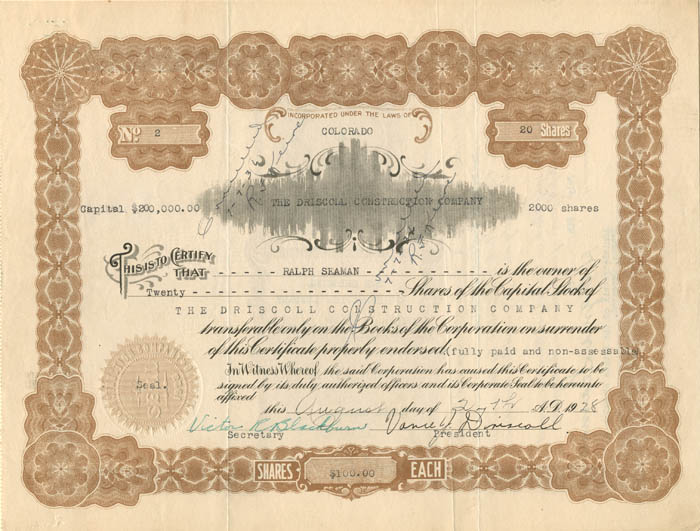 INCORPORATED UNDER THE LAWS OF
COLORADO
No 2
20 Shares
Capital $200,000.00
THE DRISCOLL CONSTRUCTION COMPANY
2000 shares
THIS IS TO CERTIFY THAT - - - - - - - RALPH SEAMAN - - - - - - - - - - is the owner of
Twenty - - - - - - - - - - - - - - - - Shares of the Capital Stock of
THE DRISCOLL CONSTRUCTION COMPANY
transferable only on the Books of the Corporation on surrender
of this Certificate properly endorsed. (fully paid and non-assessable)
In Witness Whereof, the said Corporation has caused this Certificate to be
signed by its duly authorized officers and its Corporate Seal to be hereunto
affixed
Seal.
this August day of A.D. 1928
Victor R Blackburn
Driscoll
Secretary
President
SHARES $100.00 EACH